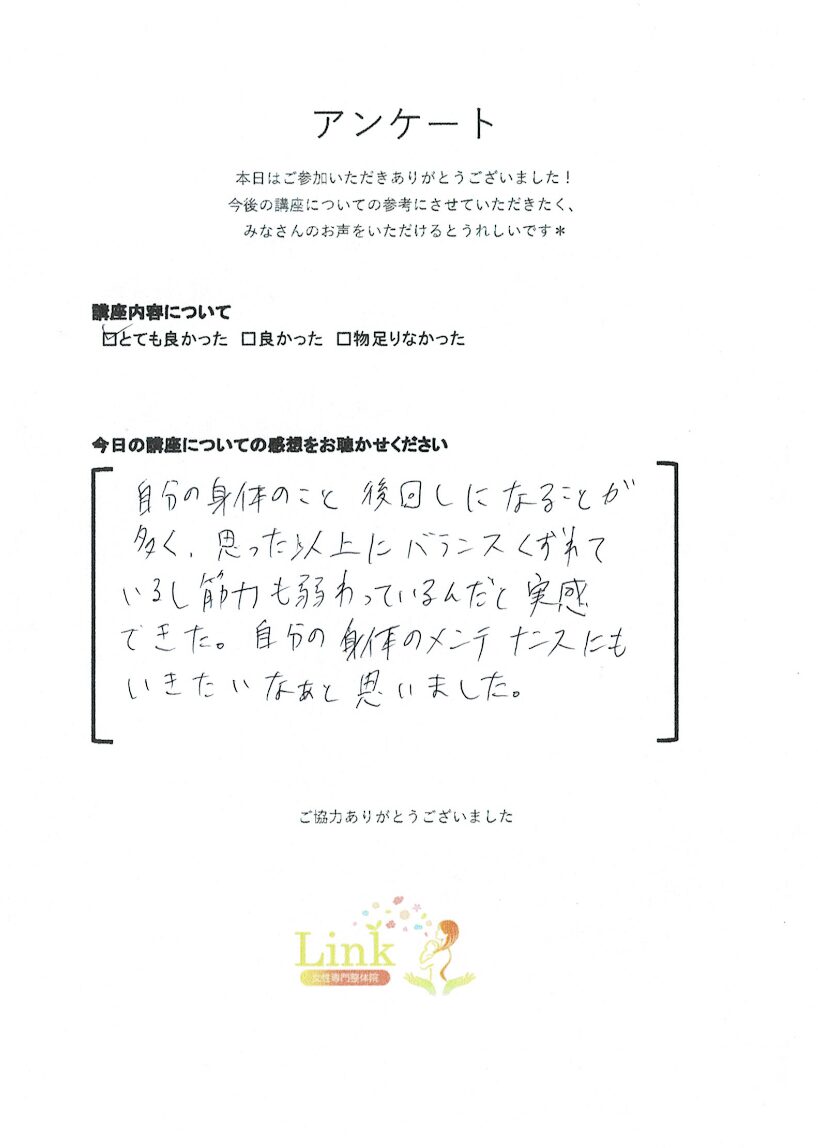 アンケート
本日はご参加いただきありがとうございました！
今後の講座についての参考にさせていただきたく、
みなさんのお声をいただけるとうれしいです＊
講座内容について
☑とても良かった □良かった □物足りなかった
今日の講座についての感想をお聴かせください
自分の身体のこと 後回しになることが
多く、思った以上にバランスくずれて
いるし筋力も弱わっているんだと実感
できた。自分の身体のメンテナンスにも
いきたいなぁと思いました。
ご協力ありがとうございました
Link
女性専門整体院